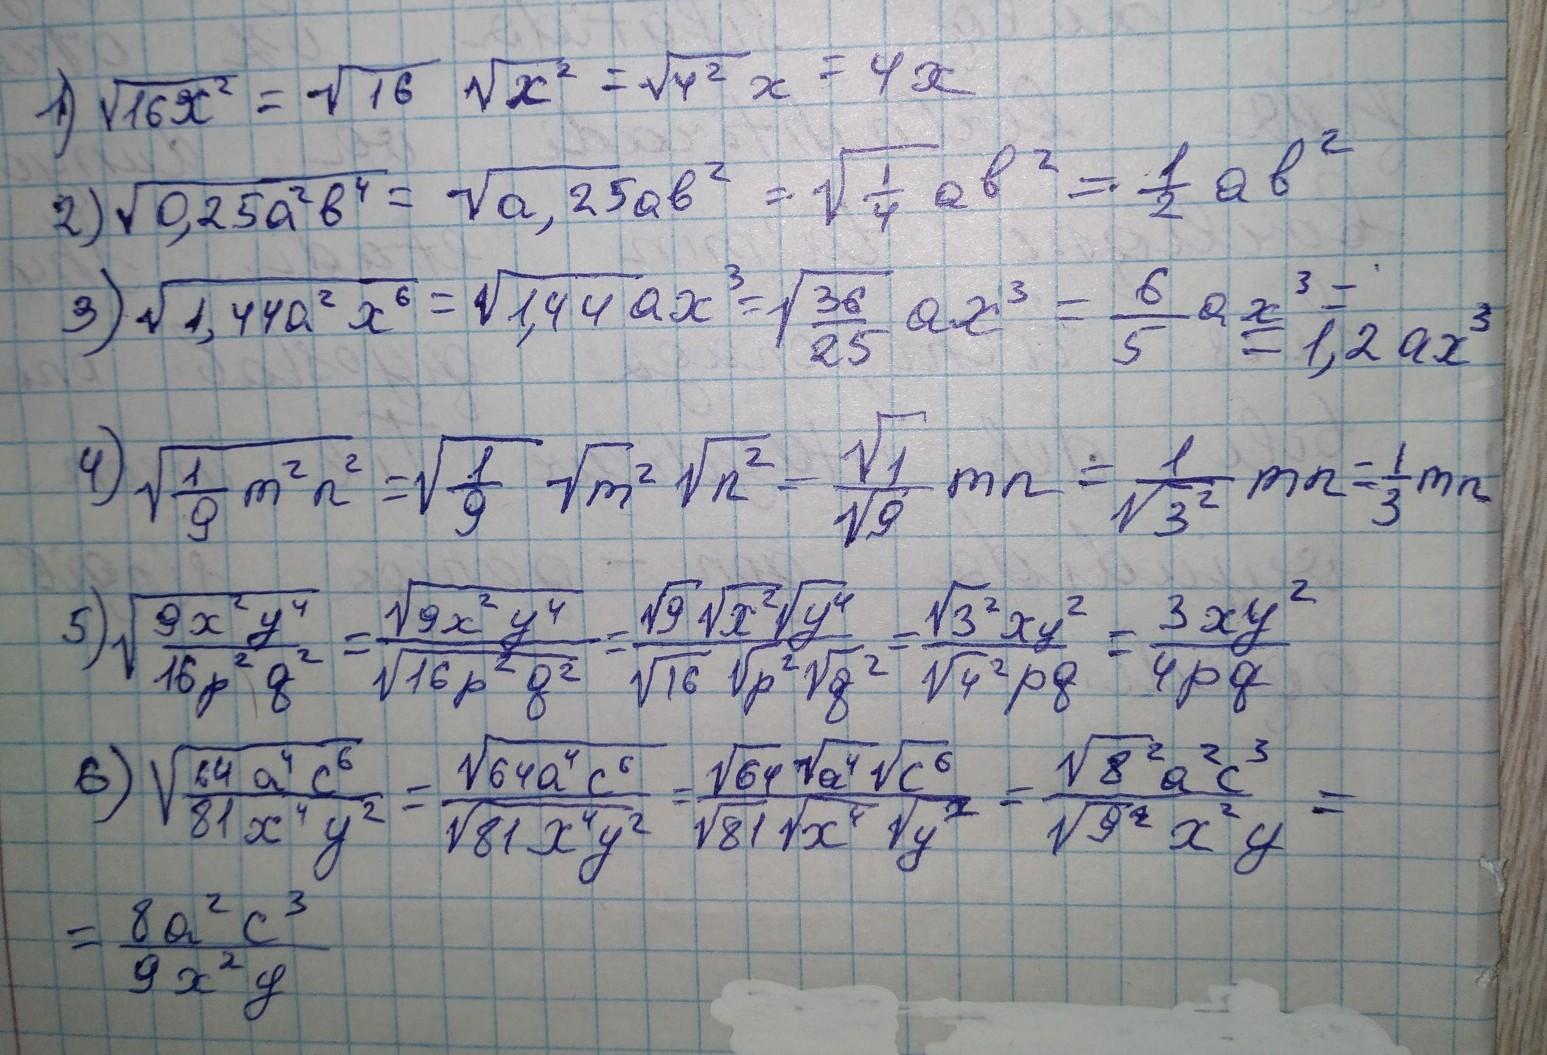 1) √16x² = √16 √x² = √4² x = 4x
2) √0,25a²b⁴ = √a,25ab² = √1/4 ab² = 1/2 ab²
3) √1,44a²x⁶ = √1,44ax³ = √36/25 ax³ = 6/5 ax³ =
= 1,2ax³
4) √1/9 m²n² = √1/9 √m² √n² = √1/√9 mn = 1/√3² mn = 1/3 mn
5) √9x²y⁴/16p²q² = √9x²y⁴/√16p²q² = √9√x²√y⁴/√16√p²√q² = √3²xy²/√4²pq = 3xy²/4pq
6) √64a⁴c⁶/81x⁴y² = √64a⁴c⁶/√81x⁴y² = √64√a⁴√c⁶/√81√x⁴√y² = √8²a²c³/√9²x²y =
= 8a²c³/9x²y